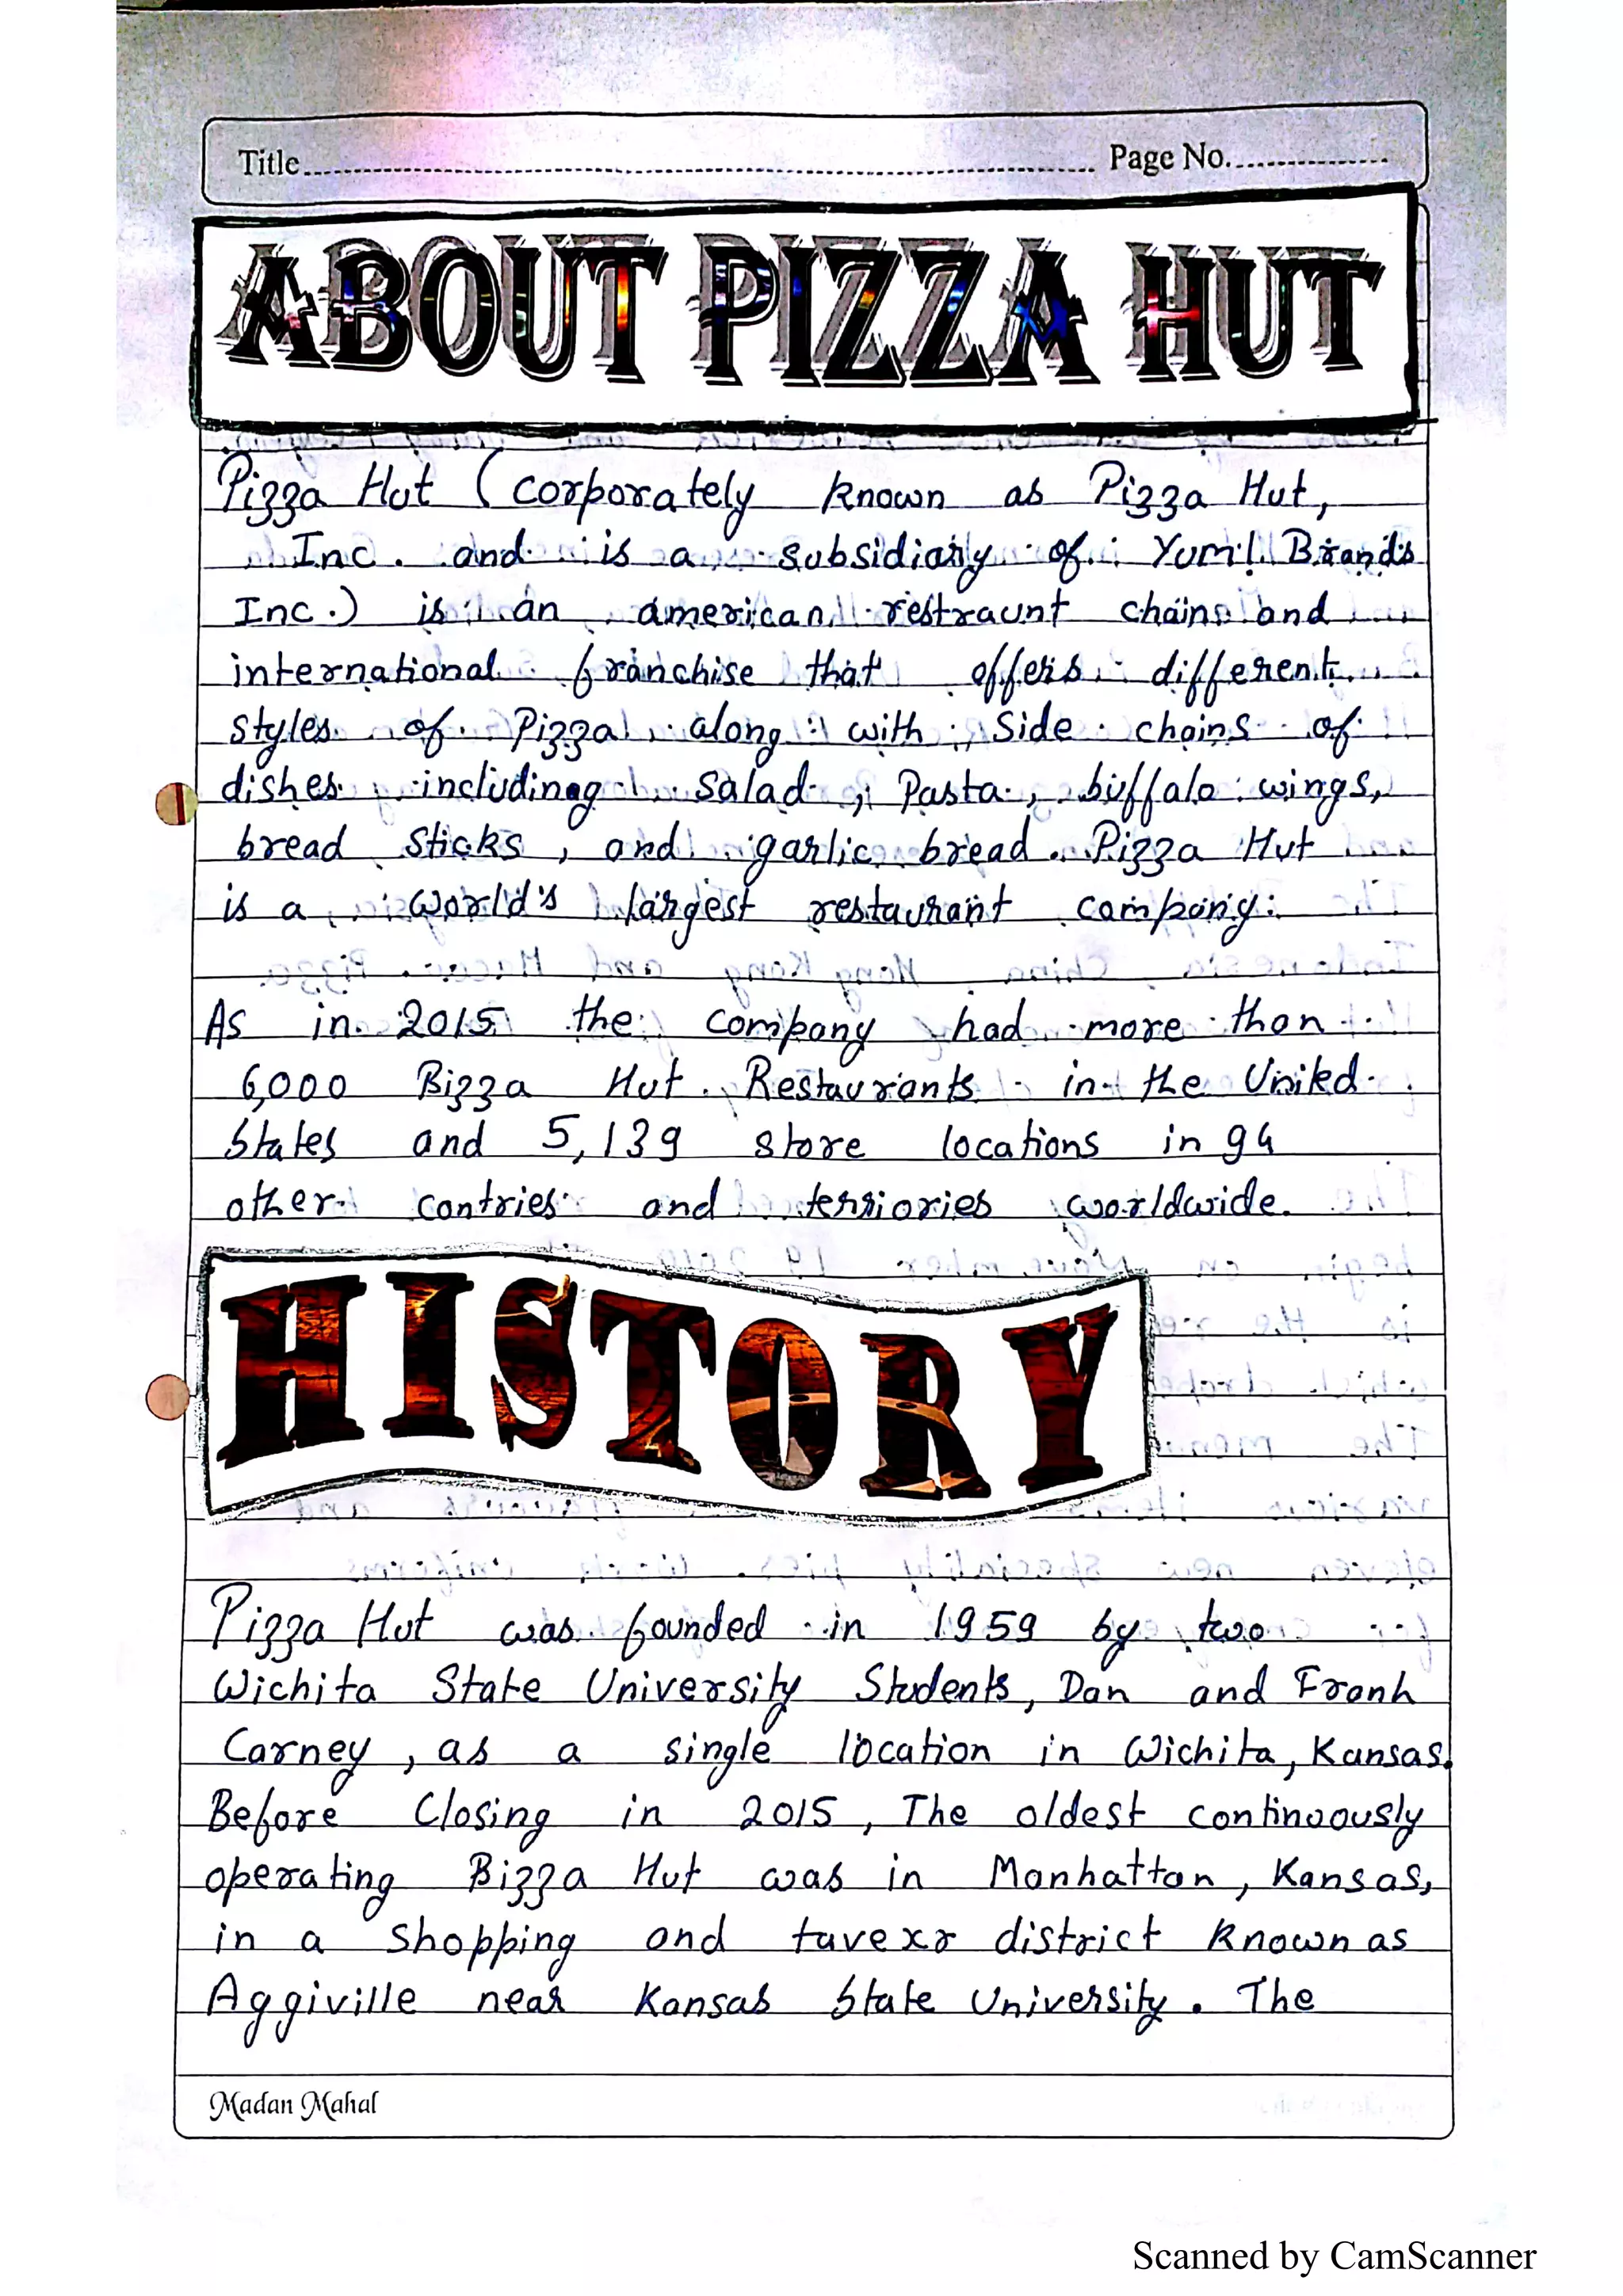 Title Page No.
ABOUT PIZZA HUT
Pizza Hut (corporately known as Pizza Hut,
Inc. and is a subsidiary of Yum! Brands
Inc.) is an american restraunt chains and
international franchise that offers different
styles of Pizza along with side chains of
dishes includinag salad, Pasta, buffalo wings,
bread sticks, and garlic bread. Pizza Hut
is a world's largest restaurant company.
As in 2015 the company had more than
6,000 Bizza Hut Restaurants in the United
states and 5,139 store locations in 94
other contries and terriories worldwide.
HISTORY
Pizza Hut was founded in 1959 by two
Wichita State University Students, Dan and Frank
Carney, as a single location in Wichita, Kansas.
Before Closing in 2015, The oldest continuously
operating Bizza Hut was in Manhattan, Kansas,
in a shopping and tavexr district known as
Aggiville near Kansas state University. The
Madan Mahal
Scanned by CamScanner